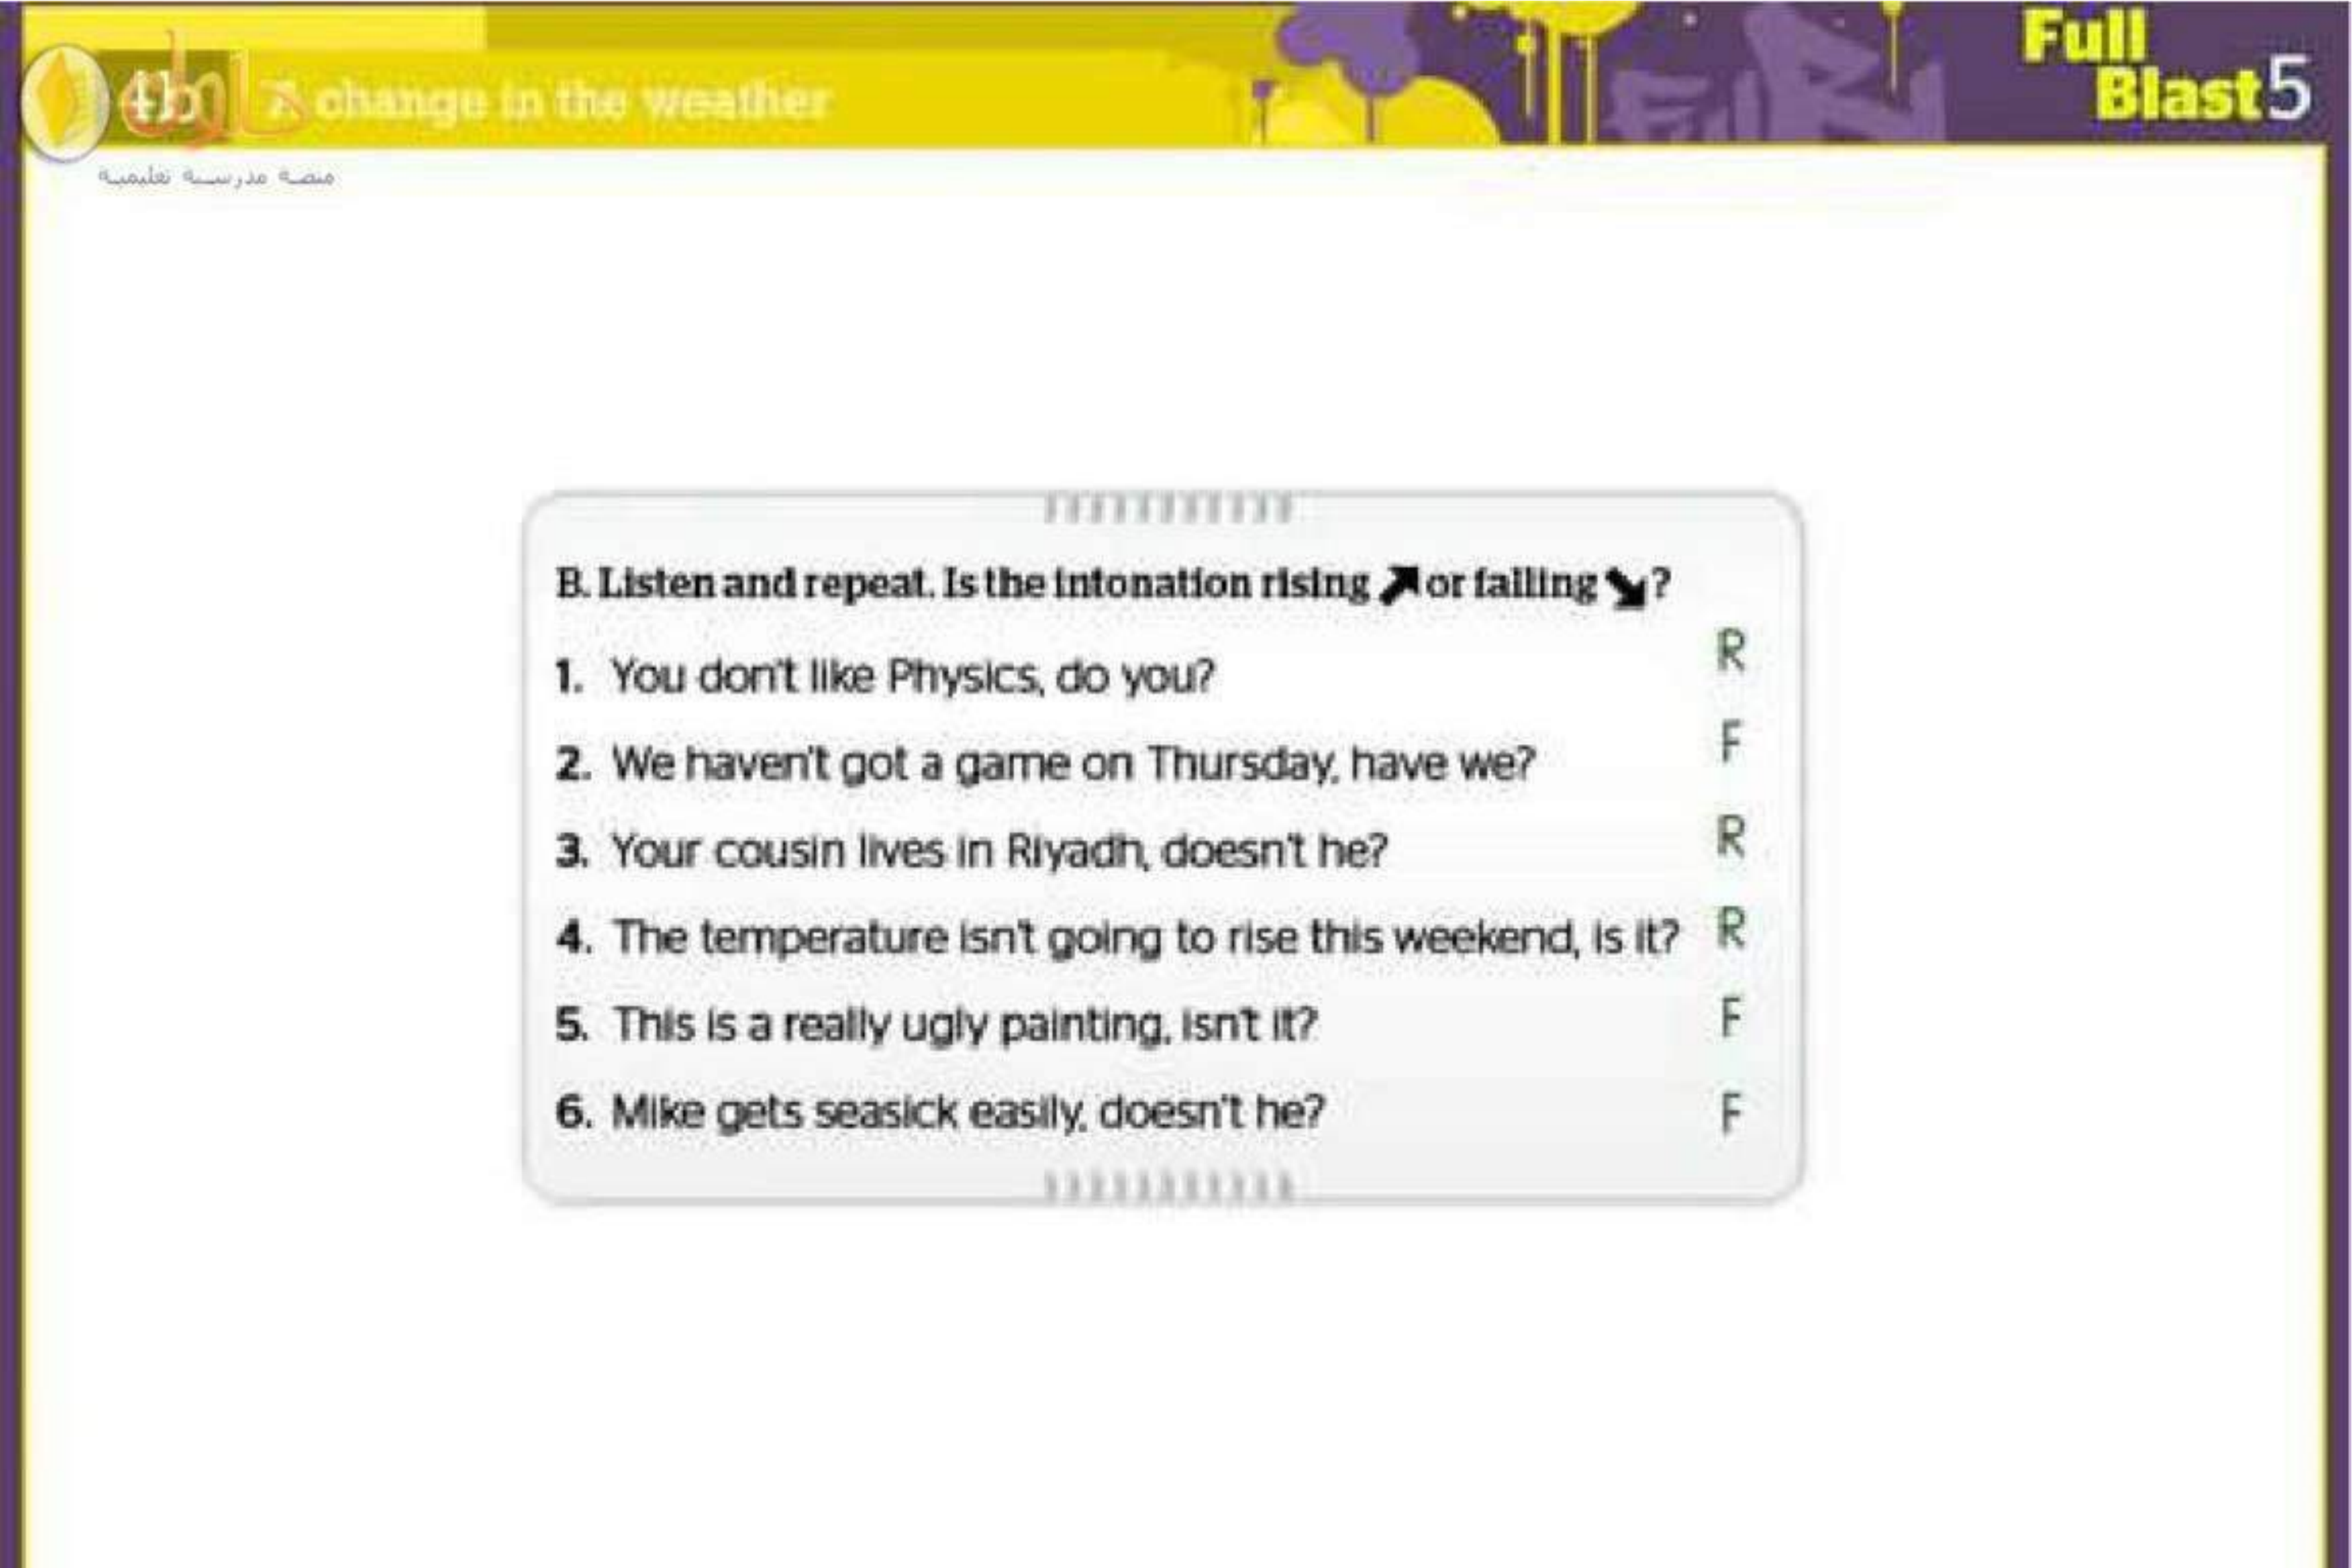 Full
Blast5
4b A change in the weather
حلول
منصة مدرسية تعليمية
B. Listen and repeat. Is the intonation rising ↗ or falling ↘?
1. You don't like Physics, do you? R
2. We haven't got a game on Thursday, have we? F
3. Your cousin lives in Riyadh, doesn't he? R
4. The temperature isn't going to rise this weekend, is it? R
5. This is a really ugly painting, isn't it? F
6. Mike gets seasick easily, doesn't he? F